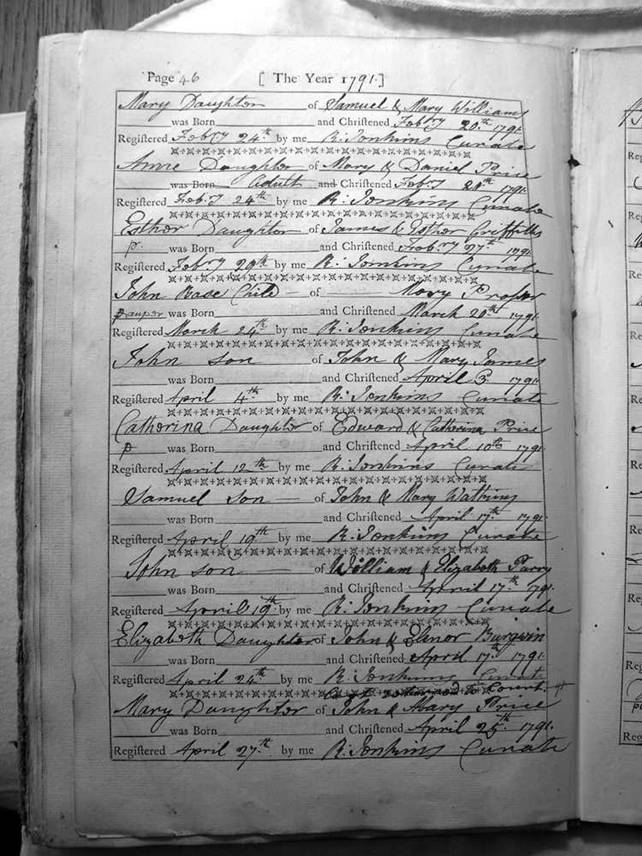 Page 46 [ The Year 1791.]
Mary Daughter of Samuel & Mary Williams
was Born and Christened Feb:ry 20.th 1791
Registered Feb:ry 24th by me R: Jenkins Curate
Anne Daughter of Mary & Daniel Price
was Born Adult and Christened Feb:y 20th 1791
Registered Feb:y 24th by me R: Jenkins Curate
Esther Daughter of James & Esther Griffiths
P. was Born and Christened Feb:ry 27th 1791
Registered Feb:ry 29th by me R: Jenkins Curate
John Base Child of Mary Prosser
Pauper was Born and Christened March 20th 1791
Registered March 24th by me R: Jenkins Curate
John son of John & Mary James
was Born and Christened April 3 1791
Registered April 4th by me R: Jenkins Curate
Catherina Daughter of Edward & Catherina Price
P was Born and Christened April 10th 1791
Registered April 12th by me R: Jenkins Curate
Samuel son of John & Mary Watkins
was Born and Christened April 17th 1791
Registered April 19th by me R: Jenkins Curate
John son of William & Elizabeth Parry
was Born and Christened April 17th 1791
Registered April 19th by me R: Jenkins Curate
Elizabeth Daughter of John & Elinor Burgwin
was Born and Christened April 17th 1791
Registered April 24th by me R: Jenkins Curate
to Court
Mary Daughter of John & Mary Price
was Born and Christened April 25th 1791
Registered April 27th by me R: Jenkins Curate